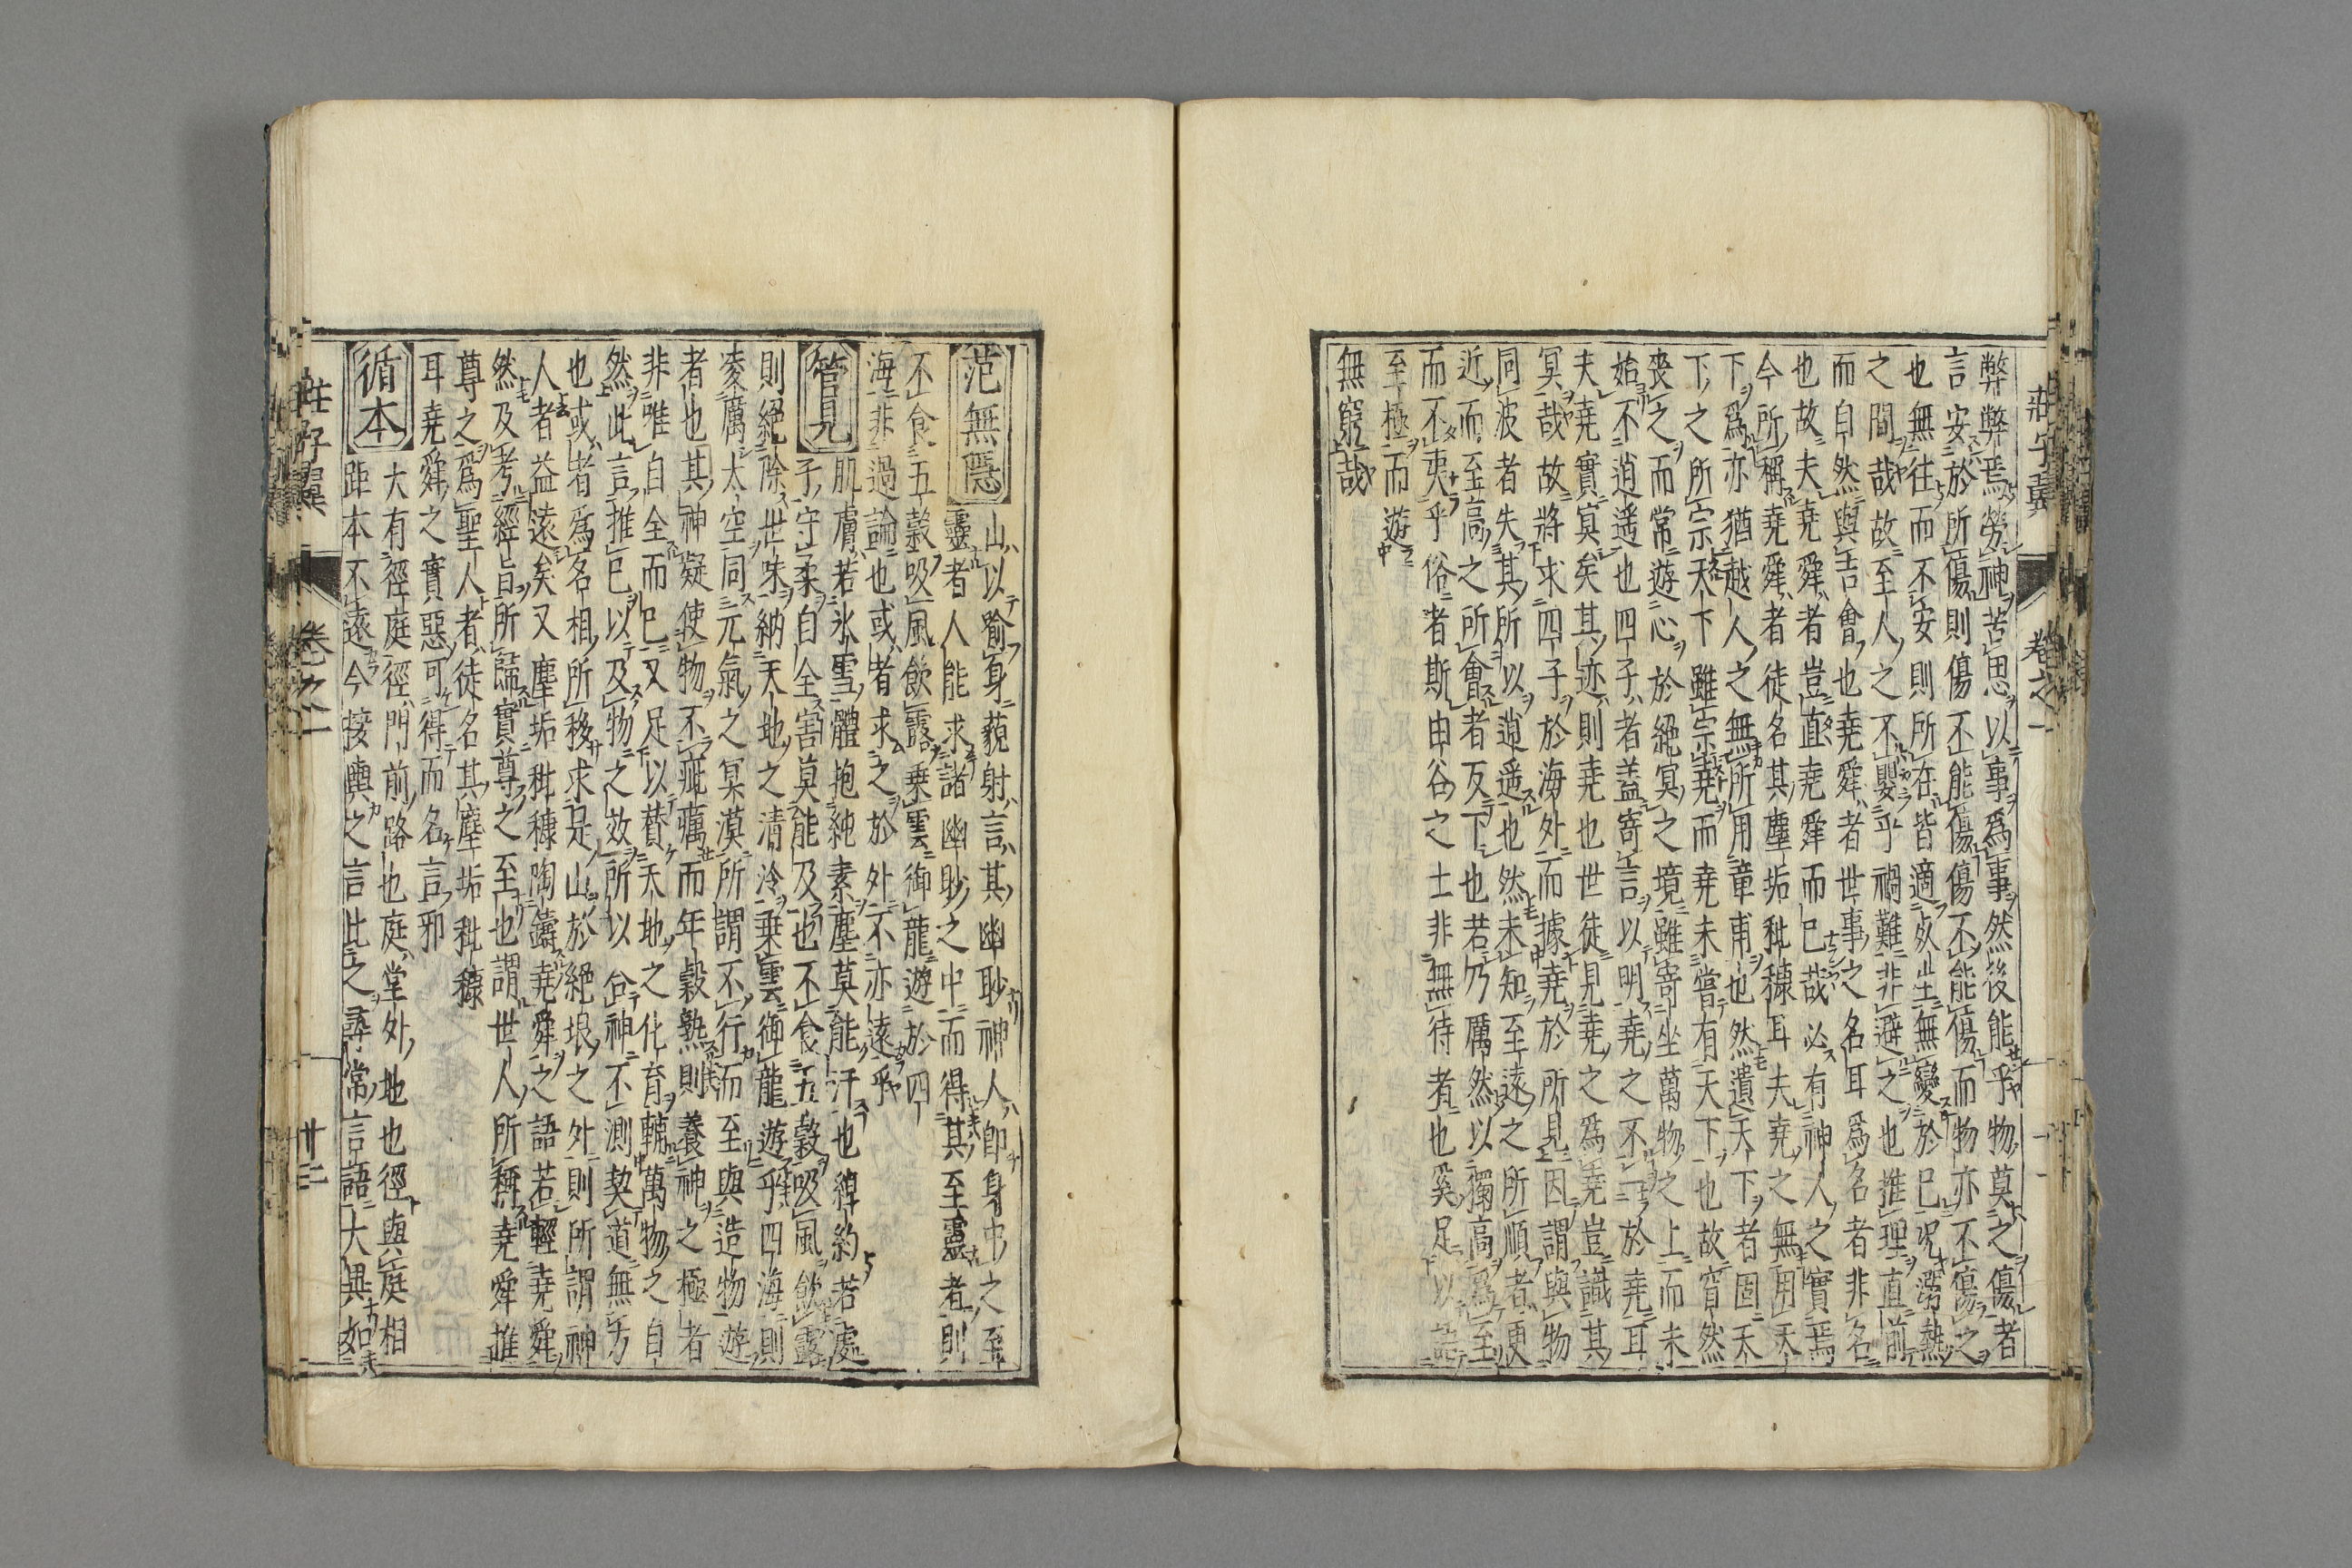 莊子翼 卷之一
弊弊焉勞神苦思以事爲事然後能乎物莫之傷者
言安於所傷則傷不能傷傷不能傷而物亦不傷之
也無往而不安則所在皆適死生無變於已况溺熱
之間哉故至人之不嬰乎禍難非避之也推理直前
而自然與吉會也堯舜者世事之名耳爲名者非名
也故夫堯舜者豈直堯舜而已哉必有神人之實焉
今所稱堯舜者徒名其塵垢秕穅耳夫堯之無用天
下爲亦猶越人之無所用章甫也然遺天下者固天
下之所宗天下雖宗堯而堯未嘗有天下也故窅然
喪之而常遊心於絶冥之境雖寄坐萬物之上而未
始不逍遥也四子者盖寄言以明堯之不一於堯耳
夫堯實冥矣其迹則堯也世徒見堯之爲堯豈識其
冥哉故將求四子於海外而據堯於所見因謂與物
同波者失其所以逍遥也然未知至遠之所順者更
近而至高之所會者反下也若乃厲然以獨高爲至
而不夷乎俗者斯由谷之士非無待者也奚足以語
至極而遊
無窮哉
范無隱 山以喻身藐射言其幽眇神人即身中之至
靈者人能求諸幽眇之中而得其至靈者則
不食五穀吸風飲露乗雲御龍遊於四
海非過論也或者求之於外不亦遠乎
管見 肌膚若氷雪體抱純素塵莫能汗也綽約若處
子守柔自全害莫能及也不食五穀吸風飲露
則絕除世味納天地之清泠乗雲御龍遊乎四海則
凌厲太空同元氣之冥漠所謂不行而至與造物遊
者也其神凝使物不疵癘而年穀熟則養神之極者
非唯自全而已又足以賛天地之化育輔萬物之自
然此言推已以及物之效所以合神不測契道無方
也或者爲名相所移求是山於絕垠之外則所謂神
人者益遠矣又塵垢秕穅陶鑄堯舜之語若輕堯舜
然及考經旨所歸實尊之至也謂世人所稱堯舜推
尊之爲聖人者徒名其塵垢秕穅
耳堯舜之實惡可得而名言邪
循本 大有徑庭徑門前路也庭堂外地也徑與庭相
距本不遠今接輿之言此之尋常言語大異如
莊子翼 卷之一 廿二